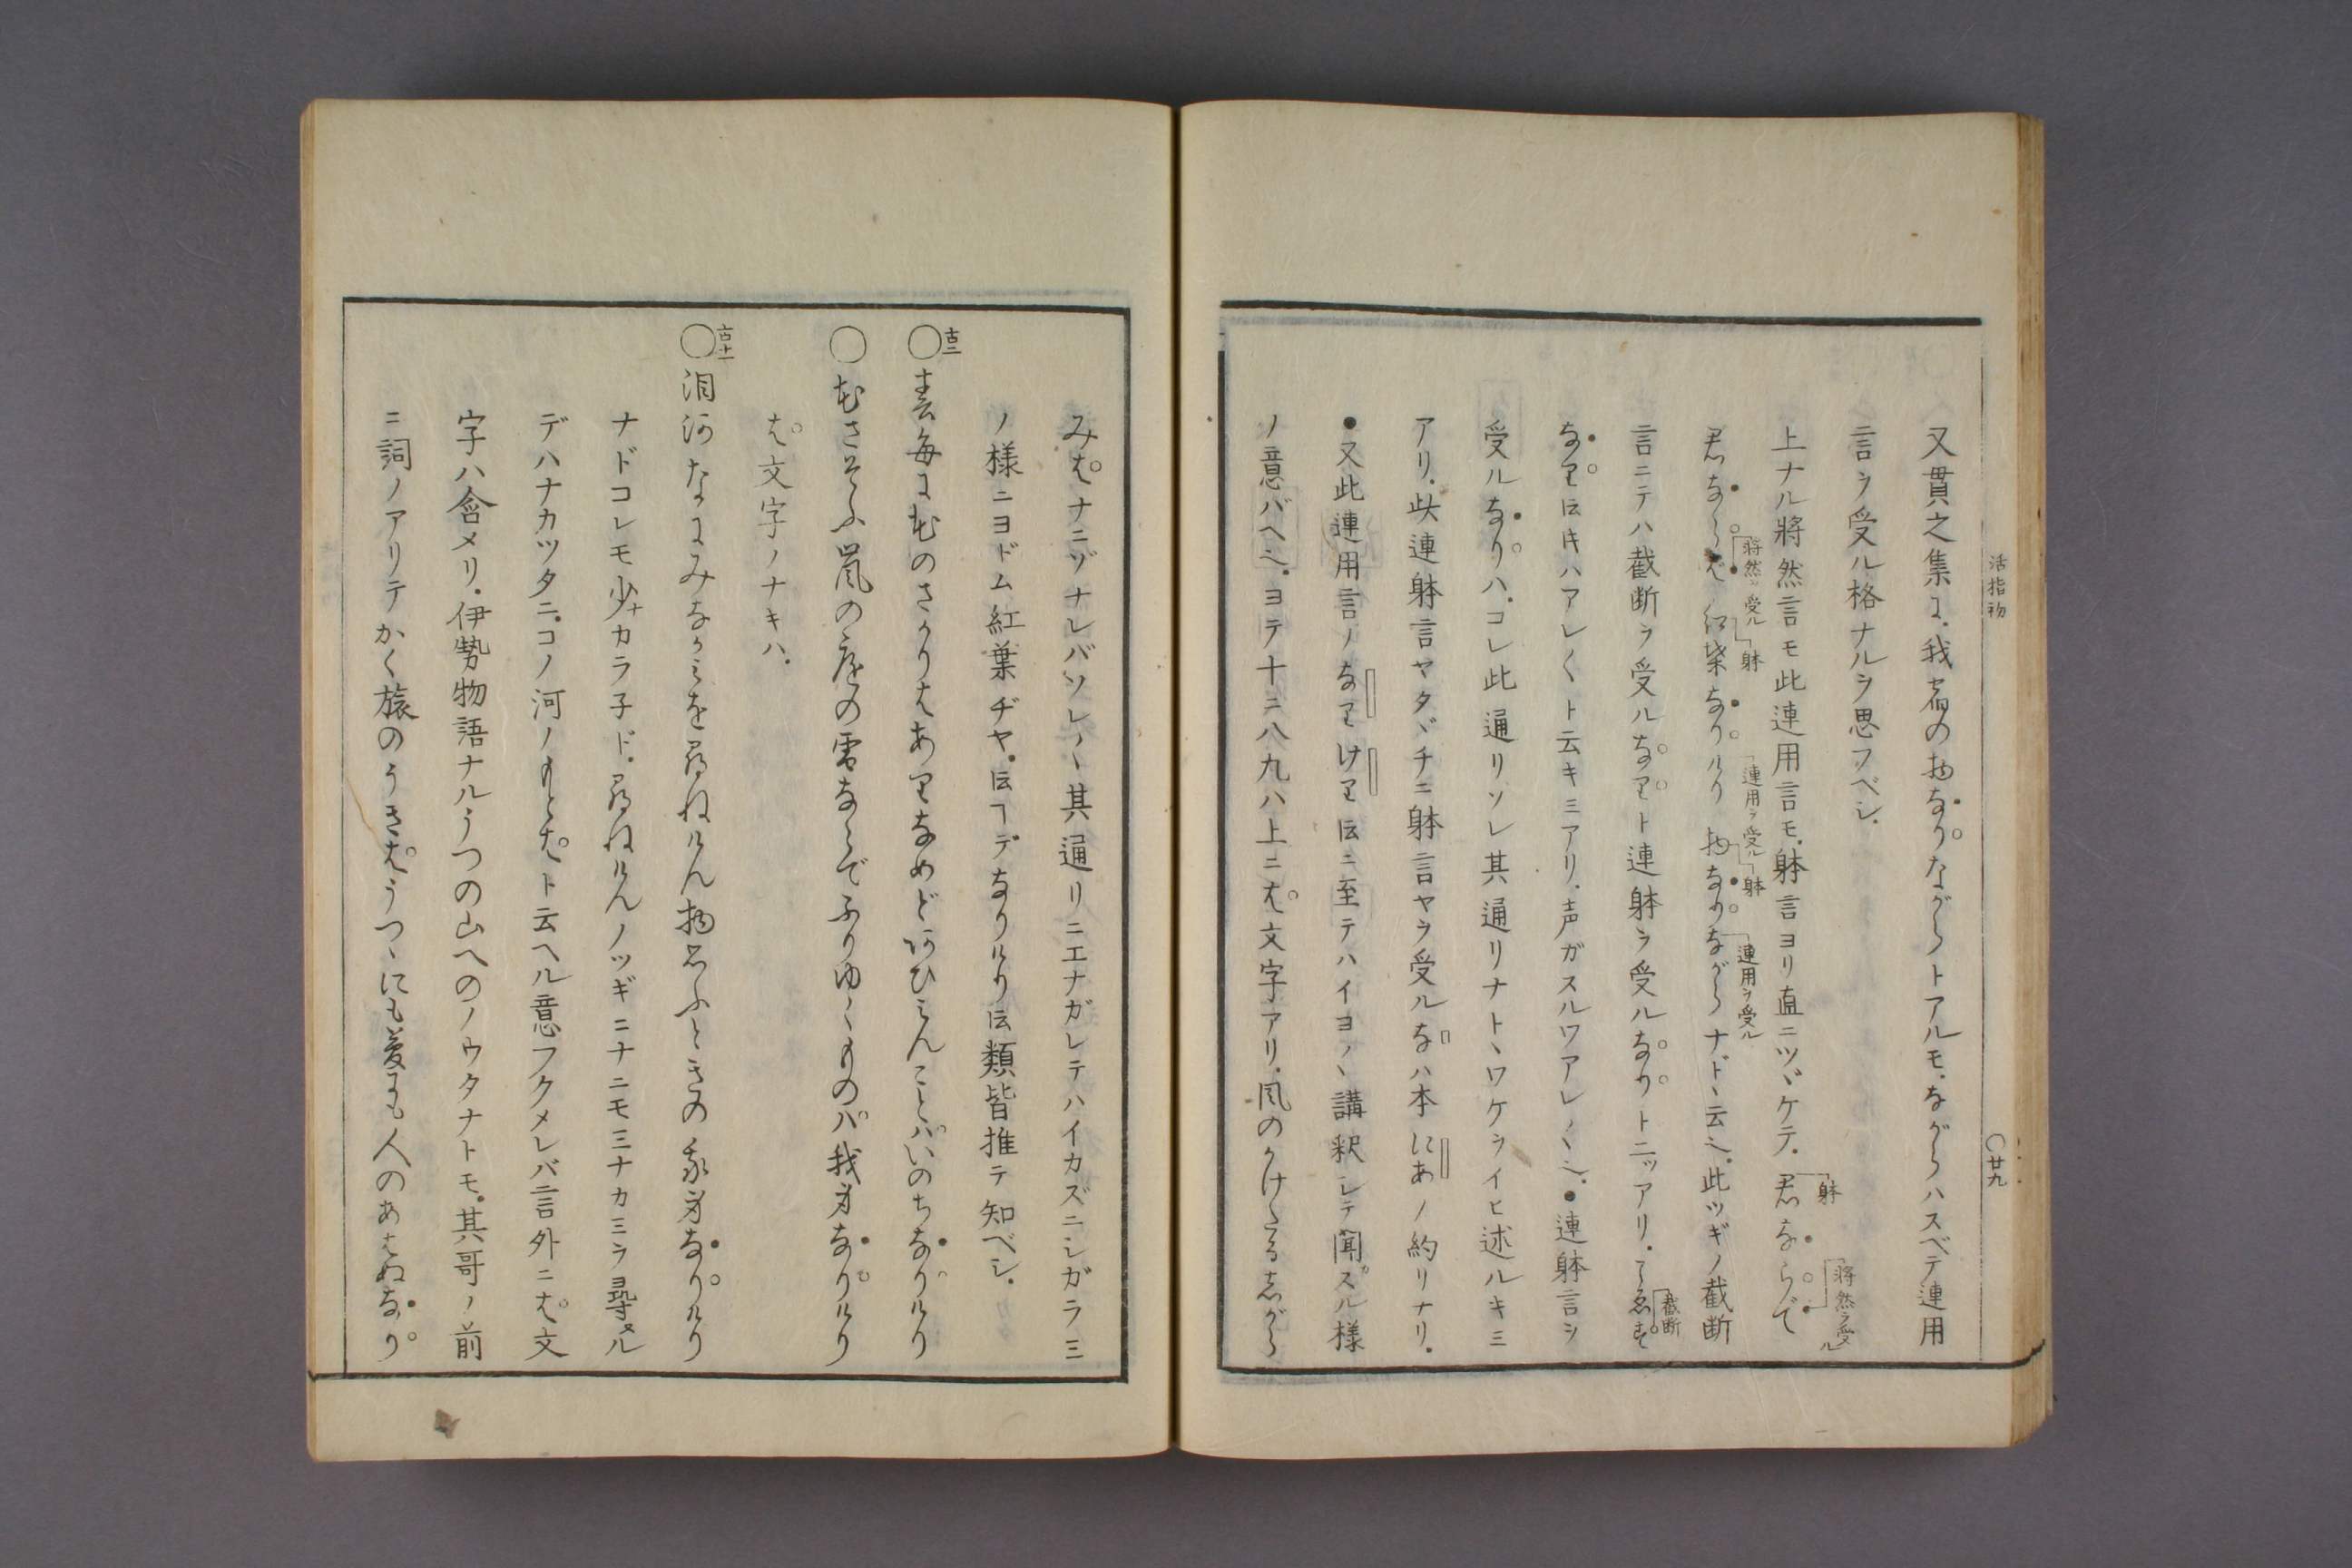 活指初
〇廿九
又貫之集に、我宿の物なりながらトアルモ、ながらハスベテ連用
言ヲ受ル格ナルヲ思フベシ.
上ナル将然言モ此連用言モ、躰言ヨリ直ニツヾケテ、君ならで
躰
将然ヲ受ル
君ならば 紅葉なりけり 物なりながらナドヽ云ヘ.此ツギノ截断
将然ヲ受ル
躰
連用ヲ受ル
躰
連用ヲ受ル
言ニテハ截断ヲ受ルなりト連躰ヲ受ルなりトニッアリ.こゑす
截断
なり伝キハアレ〱ト云キミアリ.声ガスルワアレ〱也.●連躰言ヲ
受ルなりハ.コレ此通リソレ其通リナトヽワケヲイヒ述ルキミ
アリ.此連躰言ヤタヾチニ躰言ヤラ受ルなハ本にあノ約リナリ.
●又此連用言ノなりけり伝ニ至テハイヨヽヽ講釈シテ聞スル様
ノ意バヘ也.ヨテ十ニ八九ハ上ニは文字アリ.風のかけたるしがら
みはナニヅナレバソレヽヽ其通リニエナガレテハイカズニシガラミ
ノ様ニヨドム紅葉ヂヤ.伝ヿデなりけり伝類皆推テ知ベシ.
古二
〇春毎に花のさかりはありなめどあひみんことはいのちなりけり
〇花さそふ嵐の庭の雪ならでふりゆくものは我身なりけり
は文字ノナキハ.
古十一
〇泪河なにみなかみを尋ねけん物思ふときの我身なりけり
ナドコレモ少ナカラ子ド.尋ねけんノツギニナニモミナカミヲ尋ヌル
デハナカツタニ.コノ河ノもとはト云ヘル意フクメレバ言外ニは文
字ハ含メリ.伊勢物語ナルうつの山へのノウタナトモ.其哥ノ前
ニ詞ノアリテかく旅のうきはうつゝにも夢にも人のあはぬなり